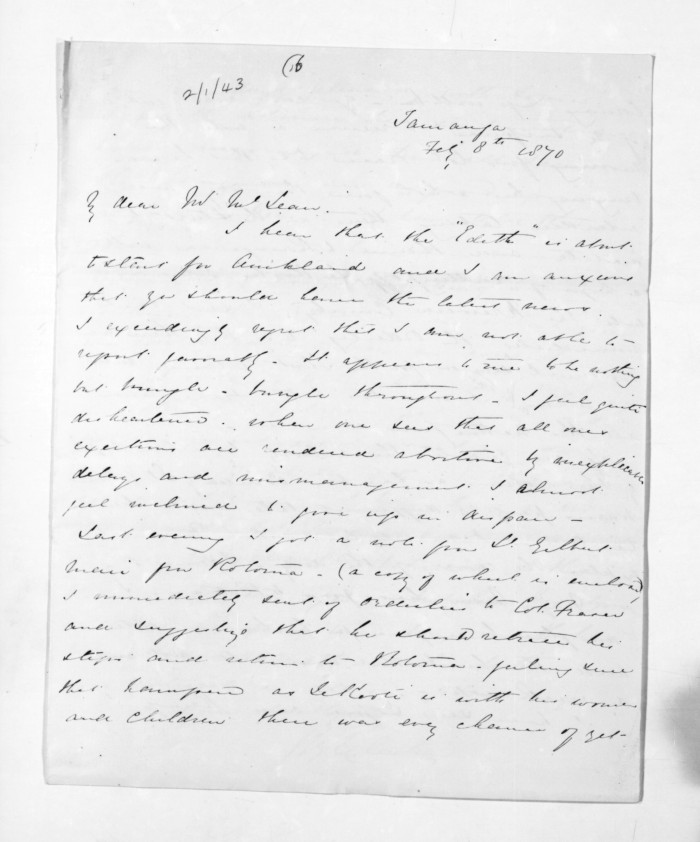 (16
2/1/43
Tauranga
Feby 8th 1870
My dear Mr McLean.
I hear that the "Edith" is about
to start for Auckland and I am anxious
that you should have the latest news.
I exceedingly regret that I am not able to
report favorably. It appears to me to be nothing
but bungle - bungle throughout. I feel quite
disheartened. When one sees that all ones
exertions are rendered abortive by inexplicable
delays and mismanagement I almost
feel inclined to give up in despair -
Last evening I got a note from Lt. Gilbert
Mair from Rotorua. (a copy of which is enclosed)
I immediately sent off orderlies to Col. Fraser
and suggesting that he should retrace his
steps and return to Rotorua - feeling sure
that hampered as Te Kooti is with his women
and children there was every chance of get-